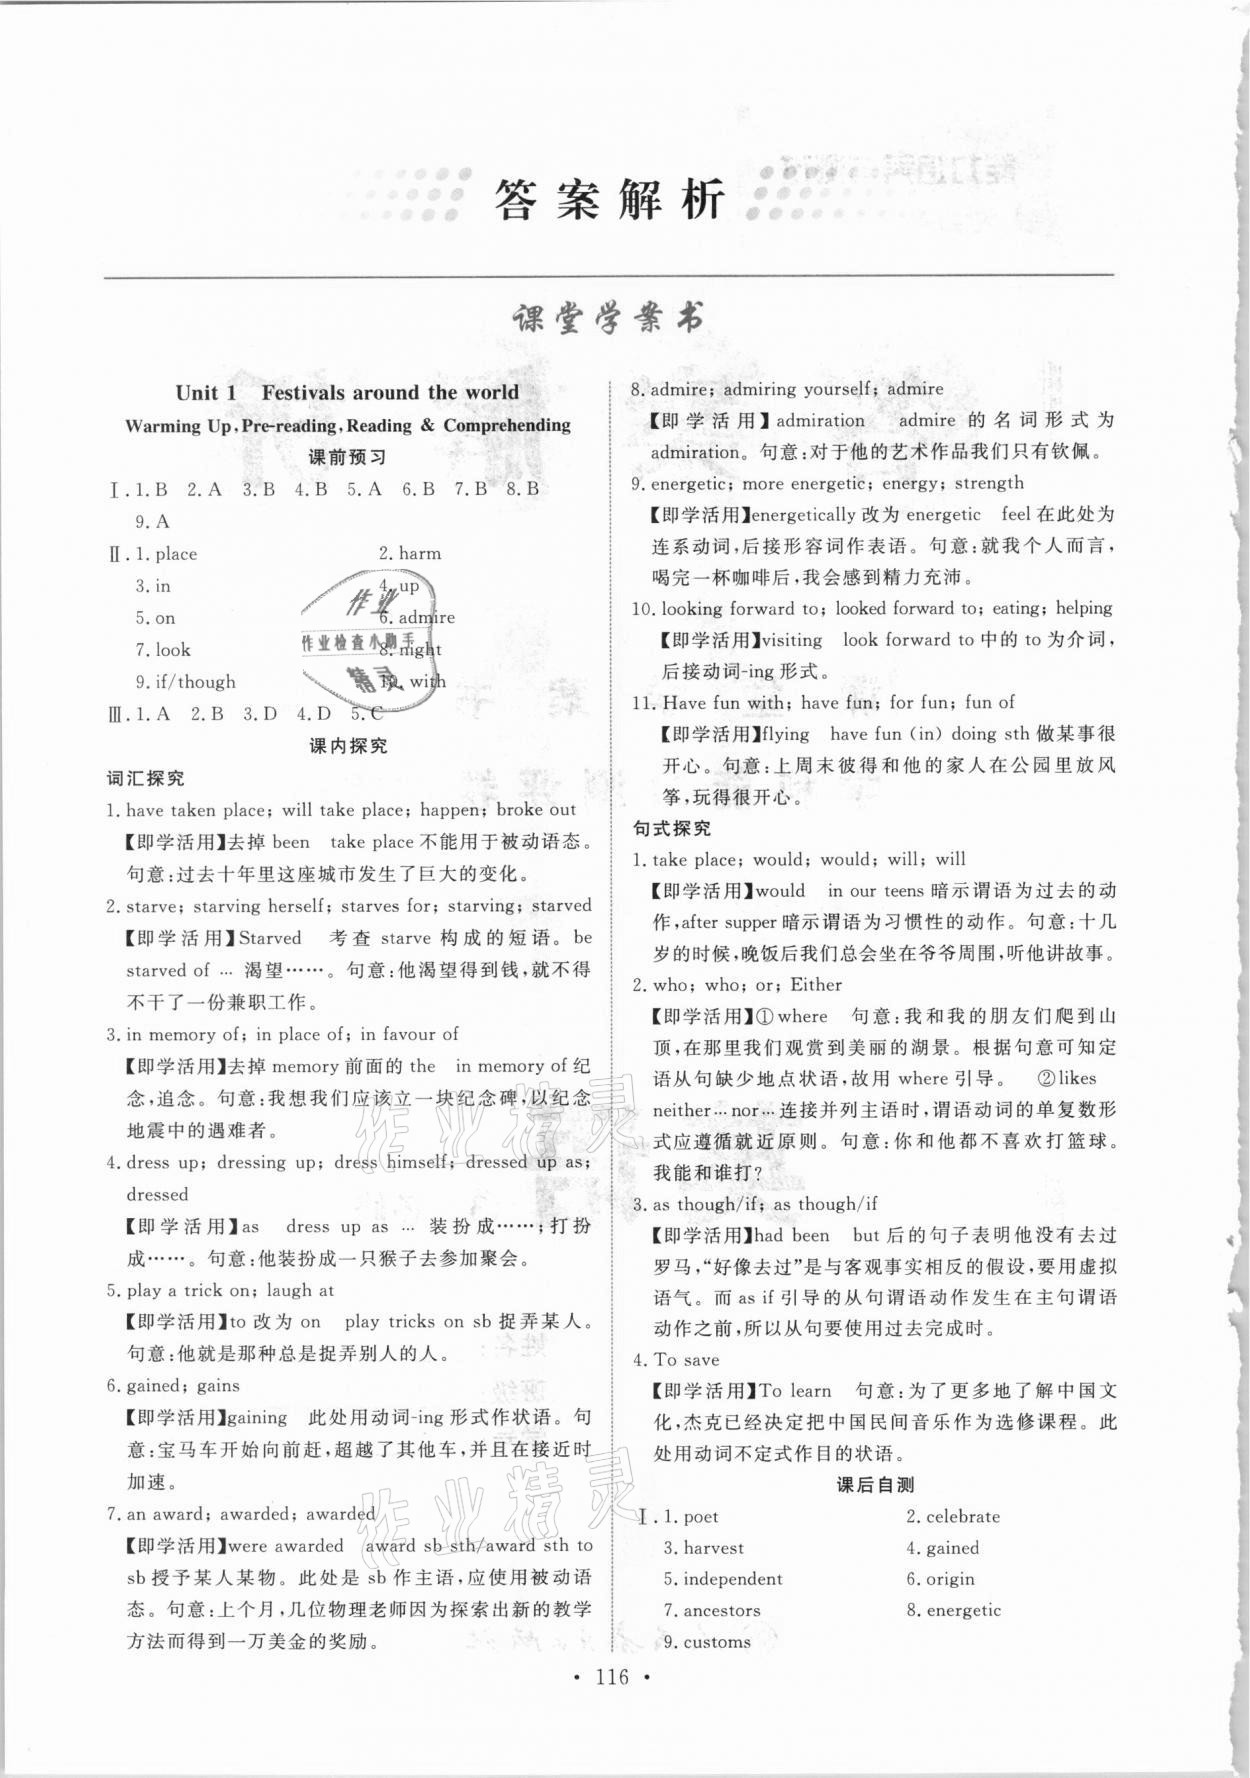 答案解析
课堂学案书
Unit 1 Festivals around the world
Warming Up, Pre-reading, Reading & Comprehending
课前预习
Ⅰ. 1. B 2. A 3. B 4. B 5. A 6. B 7. B 8. B
9. A
Ⅱ. 1. place 2. harm
3. in 4. up
5. on 6. admire
7. look 8. night
9. if/though 10. with
Ⅲ. 1. A 2. B 3. D 4. D 5. C
作业
作业检查小助手
精灵
课内探究
词汇探究
1. have taken place; will take place; happen; broke out
【即学活用】去掉 been take place 不能用于被动语态。
句意:过去十年里这座城市发生了巨大的变化。
2. starve; starving herself; starves for; starving; starved
【即学活用】Starved 考查 starve 构成的短语。be
starved of … 渴望……。句意:他渴望得到钱,就不得
不干了一份兼职工作。
3. in memory of; in place of; in favour of
【即学活用】去掉 memory 前面的 the in memory of 纪
念,追念。句意:我想我们应该立一块纪念碑,以纪念
地震中的遇难者。
4. dress up; dressing up; dress himself; dressed up as;
dressed
【即学活用】as dress up as … 装扮成……;打扮
成……。句意:他装扮成一只猴子去参加聚会。
5. play a trick on; laugh at
【即学活用】to 改为 on play tricks on sb 捉弄某人。
句意:他就是那种总是捉弄别人的人。
6. gained; gains
【即学活用】gaining 此处用动词-ing 形式作状语。句
意:宝马车开始向前赶,超越了其他车,并且在接近时
加速。
7. an award; awarded; awarded
【即学活用】were awarded award sb sth/award sth to
sb 授予某人某物。此处是 sb 作主语,应使用被动语
态。句意:上个月,几位物理老师因为探索出新的教学
方法而得到一万美金的奖励。
8. admire; admiring yourself; admire
【即学活用】admiration admire 的名词形式为
admiration。句意:对于他的艺术作品我们只有钦佩。
9. energetic; more energetic; energy; strength
【即学活用】energetically 改为 energetic feel 在此处为
连系动词,后接形容词作表语。句意:就我个人而言,
喝完一杯咖啡后,我会感到精力充沛。
10. looking forward to; looked forward to; eating; helping
【即学活用】visiting look forward to 中的 to 为介词,
后接动词-ing 形式。
11. Have fun with; have fun; for fun; fun of
【即学活用】flying have fun (in) doing sth 做某事很
开心。句意:上周末彼得和他的家人在公园里放风
筝,玩得很开心。
句式探究
1. take place; would; would; will; will
【即学活用】would in our teens 暗示谓语为过去的动
作,after supper 暗示谓语为习惯性的动作。句意:十几
岁的时候,晚饭后我们总会坐在爷爷周围,听他讲故事。
2. who; who; or; Either
【即学活用】①where 句意:我和我的朋友们爬到山
顶,在那里我们观赏到美丽的湖景。根据句意可知定
语从句缺少地点状语,故用 where 引导。 ②likes
neither … nor … 连接并列主语时,谓语动词的单复数形
式应遵循就近原则。句意:你和他都不喜欢打篮球。
我能和谁打?
3. as though/if; as though/if
【即学活用】had been but 后的句子表明他没去过
罗马,“好像去过”是与客观事实相反的假设,要用虚拟
语气。而 as if 引导的从句谓语动作发生在主句谓语
动作之前,所以从句要使用过去完成时。
4. To save
【即学活用】To learn 句意:为了更多地了解中国文
化,杰克已经决定把中国民间音乐作为选修课程。此
处用动词不定式作目的状语。
课后自测
Ⅰ. 1. poet 2. celebrate
3. harvest 4. gained
5. independent 6. origin
7. ancestors 8. energetic
9. customs
作业精灵
作业精灵
• 116 •